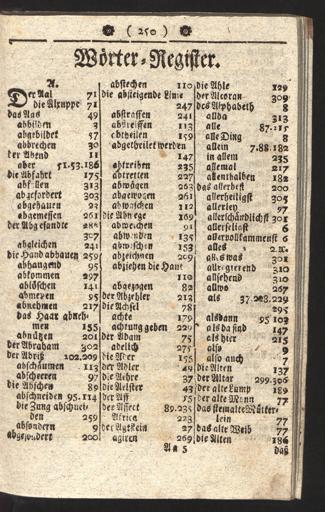 ( 250 )
Wörter-Register.
A.
Der Aal 71
die Alruppe 71
das Aas 49
abbilden 3
abgebildet 57
abbrechen 30
der Abend 11
aber 51.53.186
die Abfahrt 175
abfallen 313
abgefordert 303
abgehauen 23
abgemessen 261
der Abgesandte 286
307
abgleichen 241
die Hand abhauen 259
abhangend 95
abkommen 297
ablöschen 141
abmezen 95
abnehmen 217
das Haar abneh-
men 155
abnützen 201
der Abraham 302
der Abriß 102.209
abschäumen 113
abscheeren 97
die Abscheu 89
abschneiden 95.114
die Zung abschnei-
den 259
absondern 9
abgesondert 200
abstechen 110
die absteigende Linie
247
abstrassen 241
abstreiffen 113
abtheilen 159
abgetheilet werden
147
abtreiben 235
abtretten 227
abwägen 263
abgewogen 261
abwischen 112
die Abwege 169
abweichen 91
abwenden 135
abwischen 153
abzeichnen 209
abziehen die Haut
110
abgezogen 82
der Abzehler 213
die Achsel 78
achte 179
achtung geben 229
der Adam 75
adelich 275
die Ader 155
der Adler 49
die Aehre 37
die Aelster 43
der Aff 55
der Affect 89.235
Africa 223
der Agtstein 27
agiren 269
die Ahle 129
der Alcoran 309
des Alphabeth 8
allda 313
alle 87.115
alle Ding 8
allein 7.88.182
in allem 235
allemal 217
allenthalben 182
das allerbest 200
allerheiligst 305
allerley 97
allerschändlichst 301
allerseligst 6
allervollkommenst 6
alles 2.2.
alles was 301
allregierend 310
allsehend 310
allwo 267
als 37.208.229
295
alsdann 95.103
als da sind 147
als hier 215
also 9
also auch 7
die Alten 137
der Altar 299.306
der alte Lump 189
der alte Mann 77
das steinalte Mütter-
lein 77
das alte Weib 77
die Alten 186
Aa 5
daß